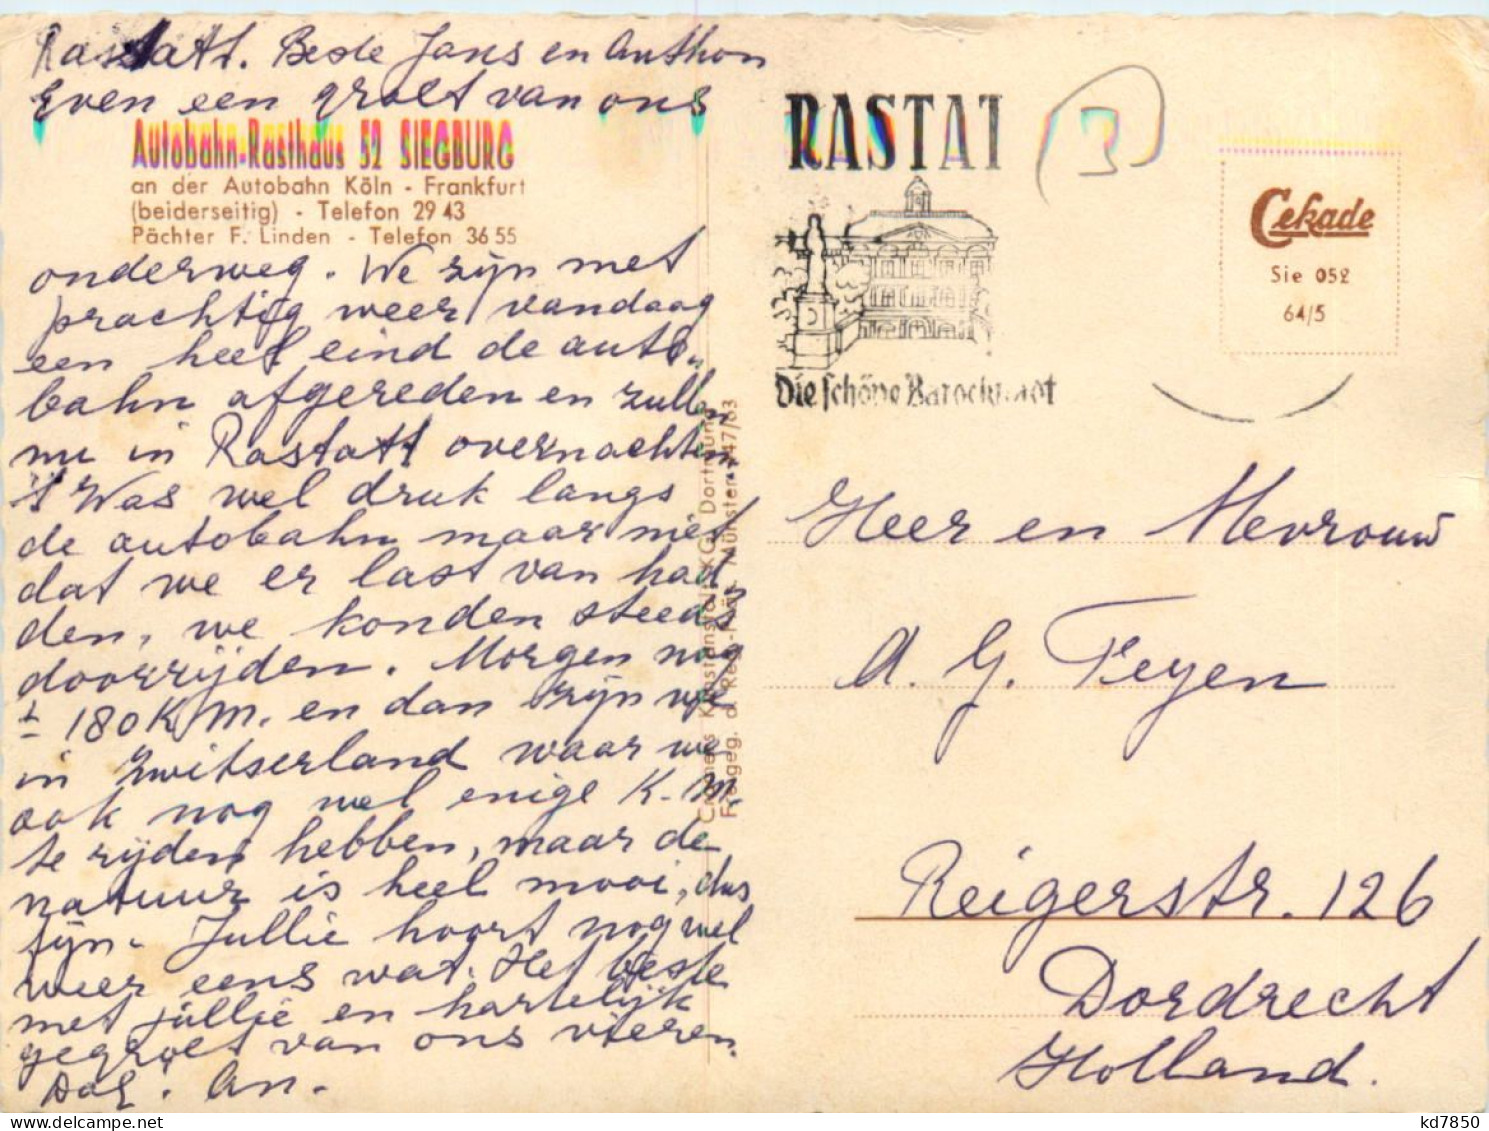 Rastatt. Beste Jans en Anthon
Even een groet van ons
Autobahn-Rasthaus 52 SIEGBURG
an der Autobahn Köln - Frankfurt
(beiderseitig) - Telefon 29 43
Pächter F. Linden - Telefon 36 55
onderweg. We zijn met
prachtig weer vandaag
een heel eind de auto-
bahn afgereden en zullen
nu in Rastatt overnachten
't Was wel druk langs
de autobahn maar niet
dat we er last van had
den, we konden steeds
doorrijden. Morgen nog
± 180 K.M. en dan zijn we
in Zwitserland waar we
ook nog wel enige K.M.
te rijden hebben, maar de
natuur is heel mooi, dus
fijn. Jullie hoort nog wel
weer eens wat. Het beste
met jullie en hartelijk
gegroet van ons vieren.
An.
Cramers Kunstanstalt KG. Dortmund
Freigeg. d. Reg.-Präs. Münster 47/63
RASTAT
Die schöne Barockstadt
Cekade
Sie 052
64/5
Heer en Mevrouw
A. G. Feyen
Reigerstr. 126
Dordrecht
Holland.
kd7850